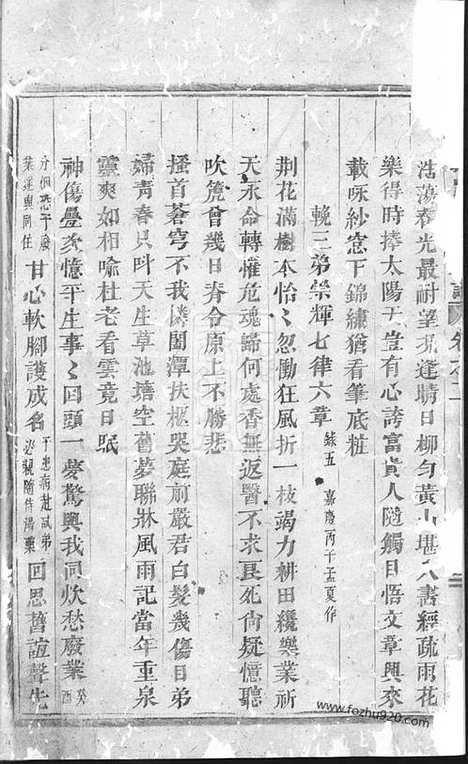 浩蕩春光最耐望逢晴日柳勻黃山堪入畫經疏雨花
樂得時捧太陽于豈有心誇富貴人隨觸目悟文章興來
載咏紗窓下錦繡猶看筆底粧
輓三弟崇輝七律六章 錄五 嘉慶丙子孟夏作
荆花滿樹本怡〻忽慟狂風折一枝竭力耕田纔樂業祈
天永命轉罹危魂歸何處香無返醫不求良死尙疑憶聽
吹篪會幾日脊令原上不勝悲
搔首蒼穹不我憐聞潭扶柩哭庭前嚴君白髮幾傷日弟
婦靑春只呌天生草池塘空舊夢聯牀風雨記當年重泉
靈爽如相喻杜老看雲竟日眠
神傷疊次憶平生事〻回頭一夢驚與我同炊愁廢業 癸酉
分個恐于廢業遂與同住 甘心軟腳護成名 于患病赴試弟必親隨侍湯藥 回思舊誼聲先
譜
卷之二
www.fozhu920.com